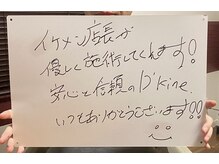 イケメン店長が
優しく施術してくれます!!
安心と信頼のD'Kine.
いつもありがとうございます!!